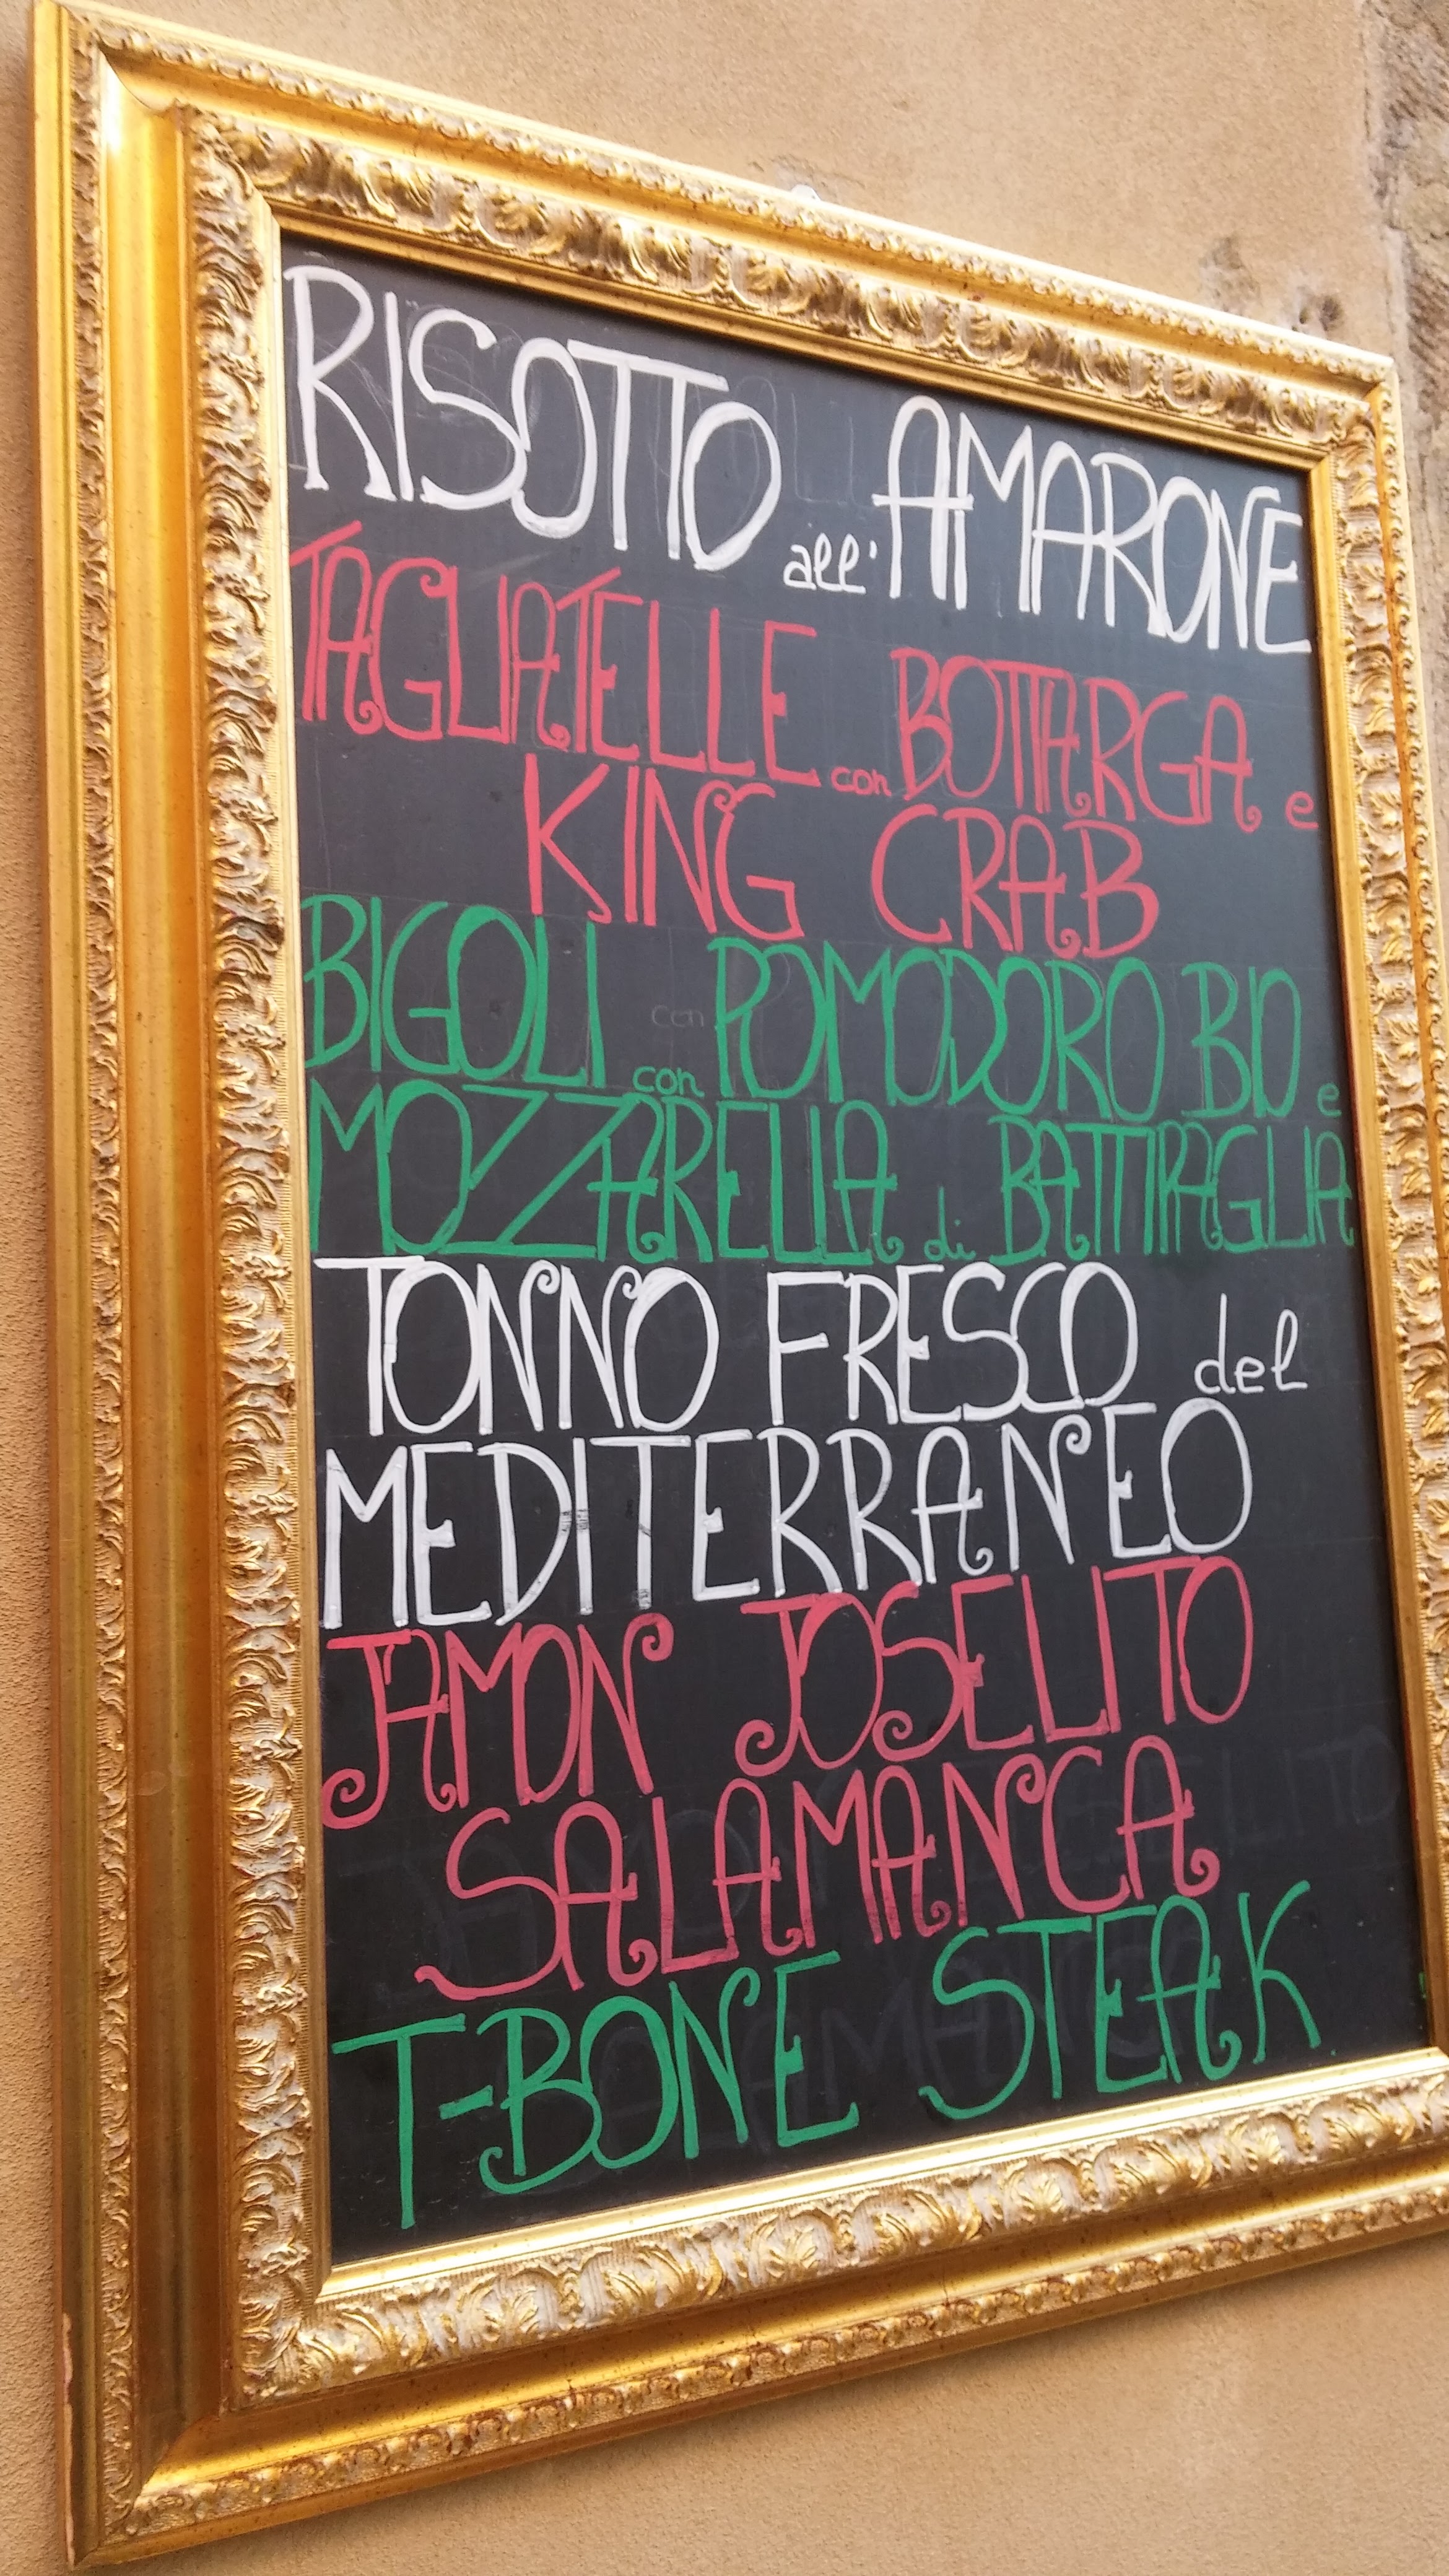 RISOTTO all' AMARONE
TAGLIATELLE con BOTTARGA e
KING CRAB
BIGOLI con POMODORO BIO e
MOZZARELLA di BATTIPAGLIA
TONNO FRESCO del
MEDITERRANEO
JAMON JOSELITO
SALAMANCA
T-BONE STEAK